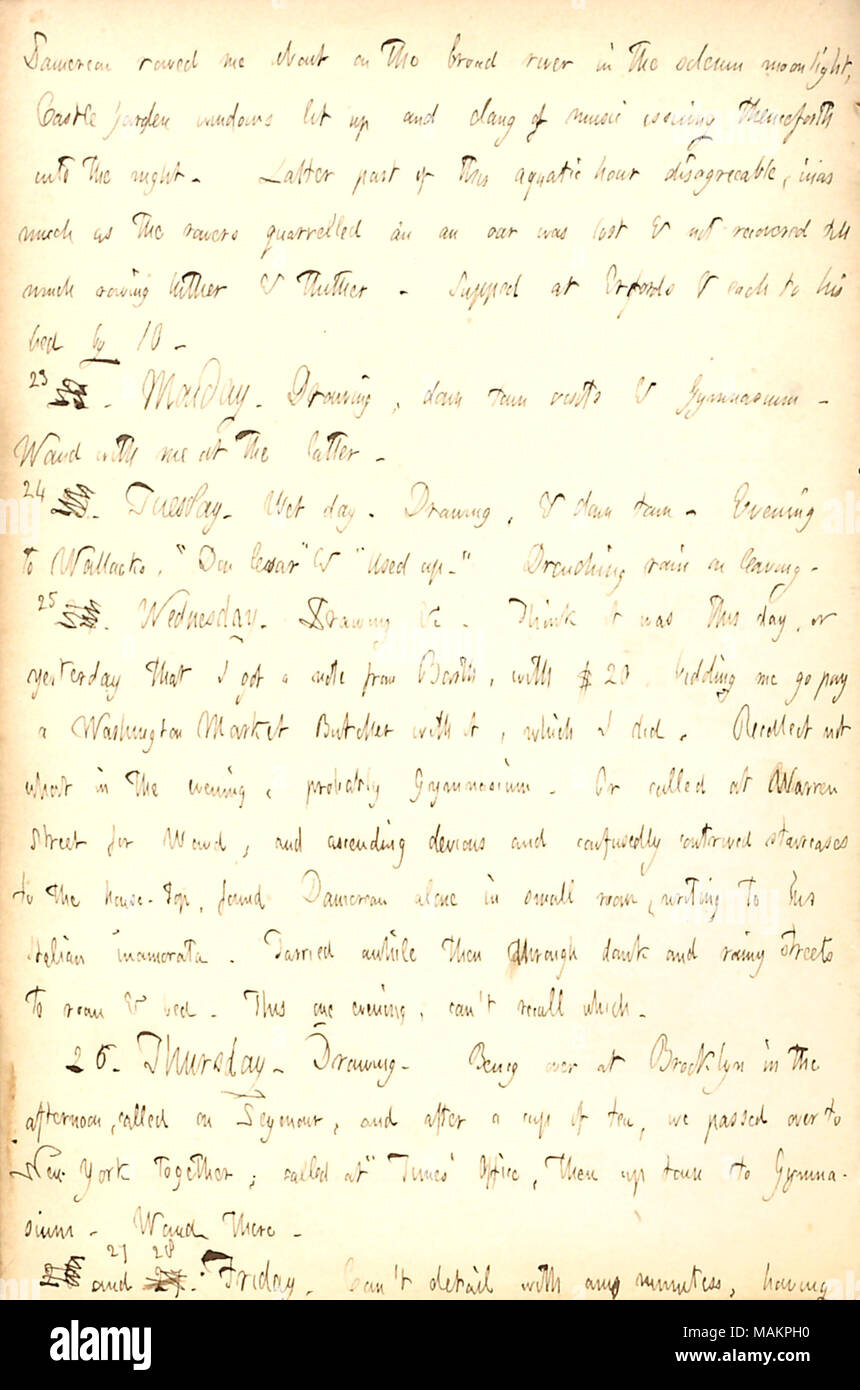 Damoreau rowed me about on the broad river in the solemn moonlight,
Castle Garden windows lit up and clang of music issuing thenceforth
into the night. Latter part of this aquatic hour disagreeable, inas
much as the rowers quarrelled an an oar was lost & not recovered till
much rowing hither & thither. Supped at Erfords & each to his
bed by 10.
23 . Monday. Drawing, down town visits & Gymnasium.
Waud with me at the latter.
24 . Tuesday. Wet day. Drawing, & down town. Evening
to Wallacks, "Don Cesar" & "Used up." Drenching rain on leaving.
25 . Wednesday. Drawing &c. Think it was this day, or
yesterday that I got a note from Barth, with $20 bidding me go pay
a Washington Market Butcher with it, which I did. Recollect not
what in the evening, probably Gymnasium. Or called at Warren
Street for Waud, and ascending devious and confusedly contrived staircases
to the house-top, found Damoreau alone in small room, writing to his
Italian inamorata. Tarried awhile then through dank and rainy streets
to room & bed. This one evening, can't recall which.
26. Thursday. Drawing. Being over at Brooklyn in the
afternoon, called on Seymour, and after a cup of tea, we passed over to
New York together; called at "Times" Office, then up town to Gymna-
sium. Waud there.
27 28
and . Friday. Can't detail with any minutess, having
alamy
Image ID: MAKPH0
www.alamy.com